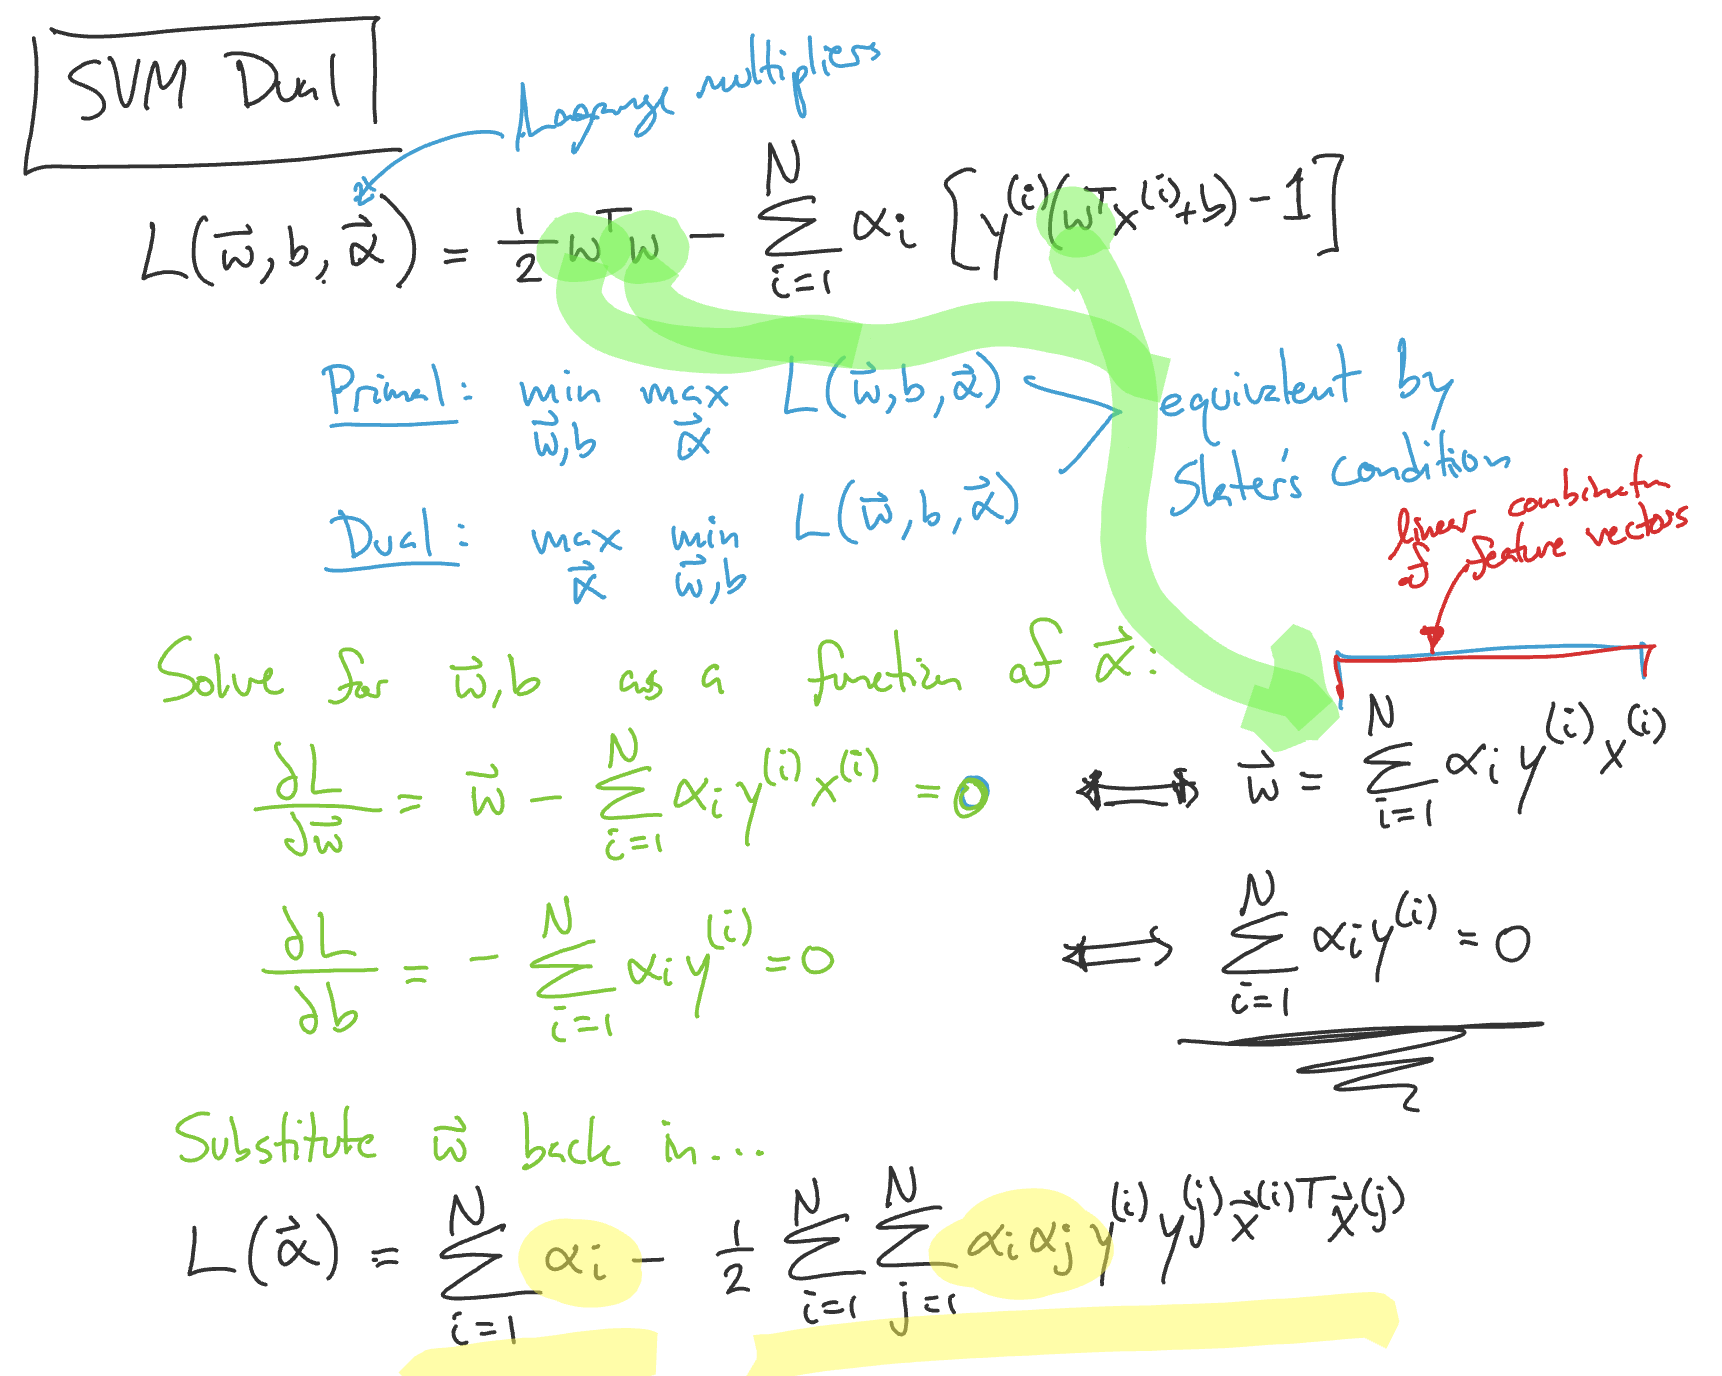 SVM Dual
Lagrange multipliers
L(w⃗, b, α⃗) = 1/2 wᵀw − ∑_{i=1}^{N} αᵢ [y⁽ⁱ⁾(wᵀx⁽ⁱ⁾+b) − 1]
Primal: min_{w⃗,b} max_{α⃗} L(w⃗, b, α⃗)
equivalent by
Slater's condition
Dual: max_{α⃗} min_{w⃗,b} L(w⃗, b, α⃗)
linear combinatn
of feature vectors
Solve for w⃗, b as a function of α⃗:
∂L/∂w⃗ = w⃗ − ∑_{i=1}^{N} αᵢ y⁽ⁱ⁾ x⁽ⁱ⁾ = 0 ⟺ w⃗ = ∑_{i=1}^{N} αᵢ y⁽ⁱ⁾ x⁽ⁱ⁾
∂L/∂b = − ∑_{i=1}^{N} αᵢ y⁽ⁱ⁾ = 0 ⟺ ∑_{i=1}^{N} αᵢ y⁽ⁱ⁾ = 0
Substitute w⃗ back in...
L(α⃗) = ∑_{i=1}^{N} αᵢ − 1/2 ∑_{i=1}^{N} ∑_{j=1}^{N} αᵢ αⱼ y⁽ⁱ⁾ y⁽ʲ⁾ x⃗⁽ⁱ⁾ᵀ x⃗⁽ʲ⁾